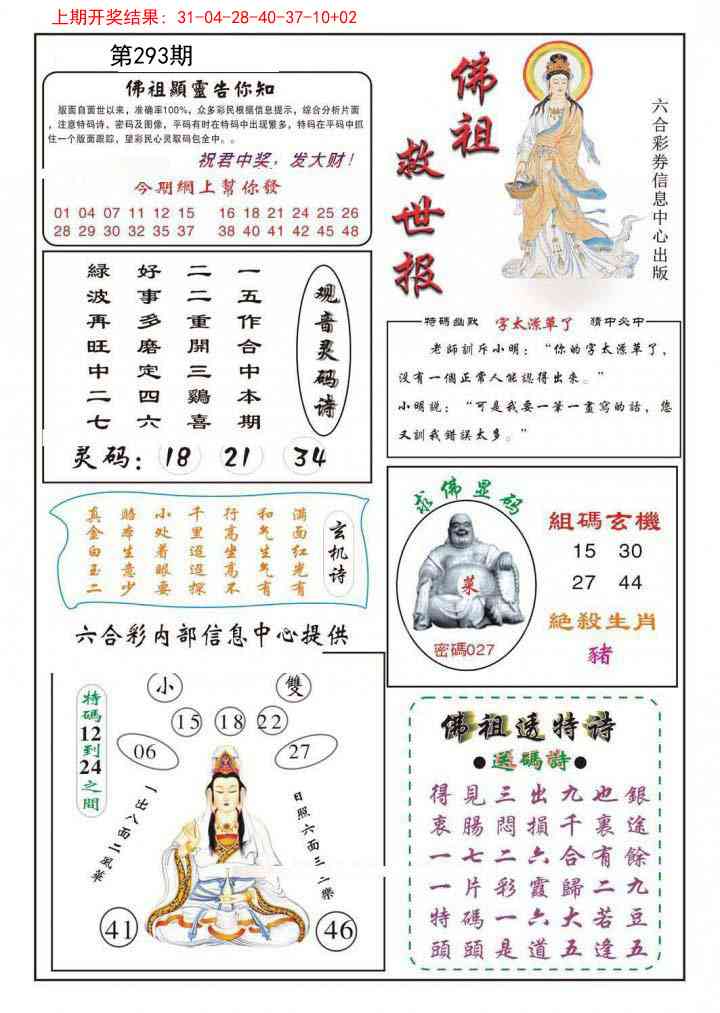 上期开奖结果：31-04-28-40-37-10+02
第293期
佛祖顯靈告你知
版面自面世以来，准确率100%，众多彩民根据信息提示，综合分析片面
，注意特码诗、密码及图像，平码有时在特码中出现繁多，特码在平码中抓
住一个版面跟踪，望彩民心灵取码包全中。。
祝君中奖，发大财！
今期網上幫你發
01 04 07 11 12 15 16 18 21 24 25 26
28 29 30 32 35 37 38 40 41 42 45 48
佛祖
救世报
六合彩券信息中心出版
观音灵码诗
一五作合中本期
二二重開三鷄喜
好事多磨定四六
緑波再旺中二七
灵码：18 21 34
特碼幽默 字太潦草了 猜中必中
老師訓斥小明：“你的字太潦草了，
没有一個正常人能認得出來。”
小明説：“可是我要一筆一畫寫的話，您
又訓我錯誤太多。”
玄机诗
满面红光有
和气生气有
行高坐高不
千里迢迢探
小处着眼要
略布生意少
真金白玉二
求佛显码
菜
密碼027
組碼玄機
15 30
27 44
絶殺生肖
豬
六合彩内部信息中心提供
特碼12到24之間
小 雙
15 18 22
06 27
一出八面二風華
日照六面三二樂
41 46
佛祖透特诗
●送碼詩●
得見三出九也銀
衷腸悶損千裏途
一七二六合有餘
一片彩霞歸二九
特碼一六大若豆
頭頭是道五逢五